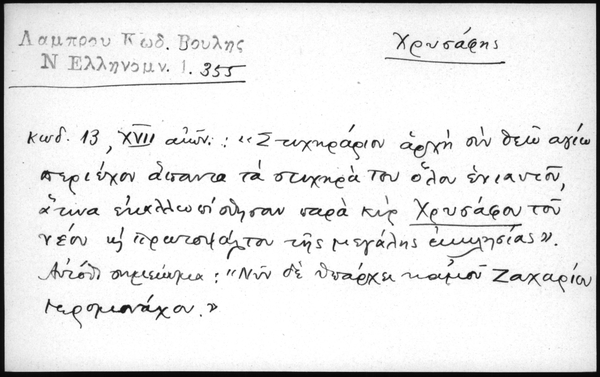 Λαμπρου Κωδ. Βουλης
Ν Ελληνομν. 1. 355
Χρυσάφης
κωδ. 13, XVII αἰών. : "Στιχηράριον ἀρχή σὺν θεῷ ἁγίῳ
περιέχον ἅπαντα τά στιχηρὰ τοῦ ὅλου ἐνιαυτοῦ,
ἅτινα ἐκαλλωπίσθησαν παρὰ κὺρ Χρυσάφου τοῦ
νέου κ̀ πρωτοψάλτου τῆς μεγάλης ἐκκλησίας".
Αὐτόθι σημείωμα : "Νῦν δὲ ὑπάρχει κἀμοῦ Ζαχαρίου
ἱερομονάχου."